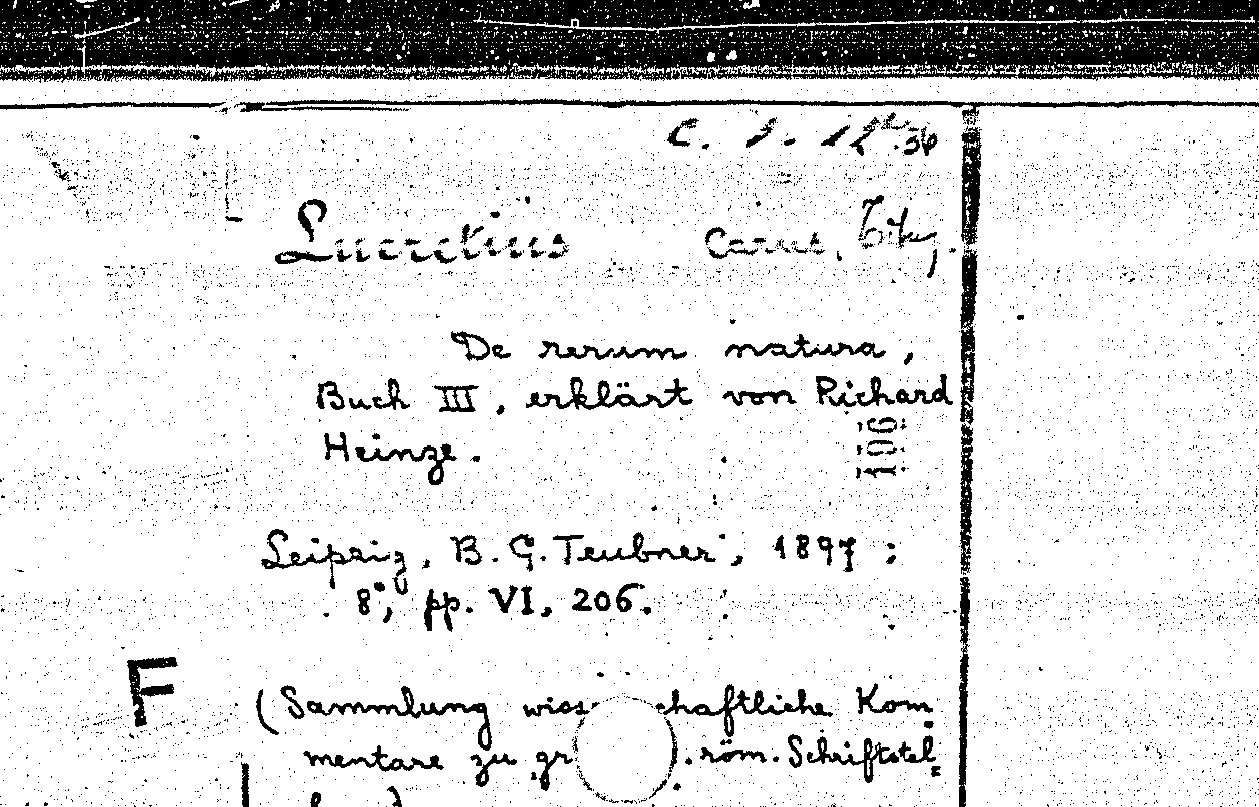 C. 1. 12 36
Lucretius Carus, Titus.
De rerum natura,
Buch III, erklärt von Richard
Heinze.
106
Leipzig, B. G. Teubner, 1897 ;
8°, pp. VI, 206.
F
(Sammlung wiss chaftliche Kom
mentare zu gr . röm. Schriftstel